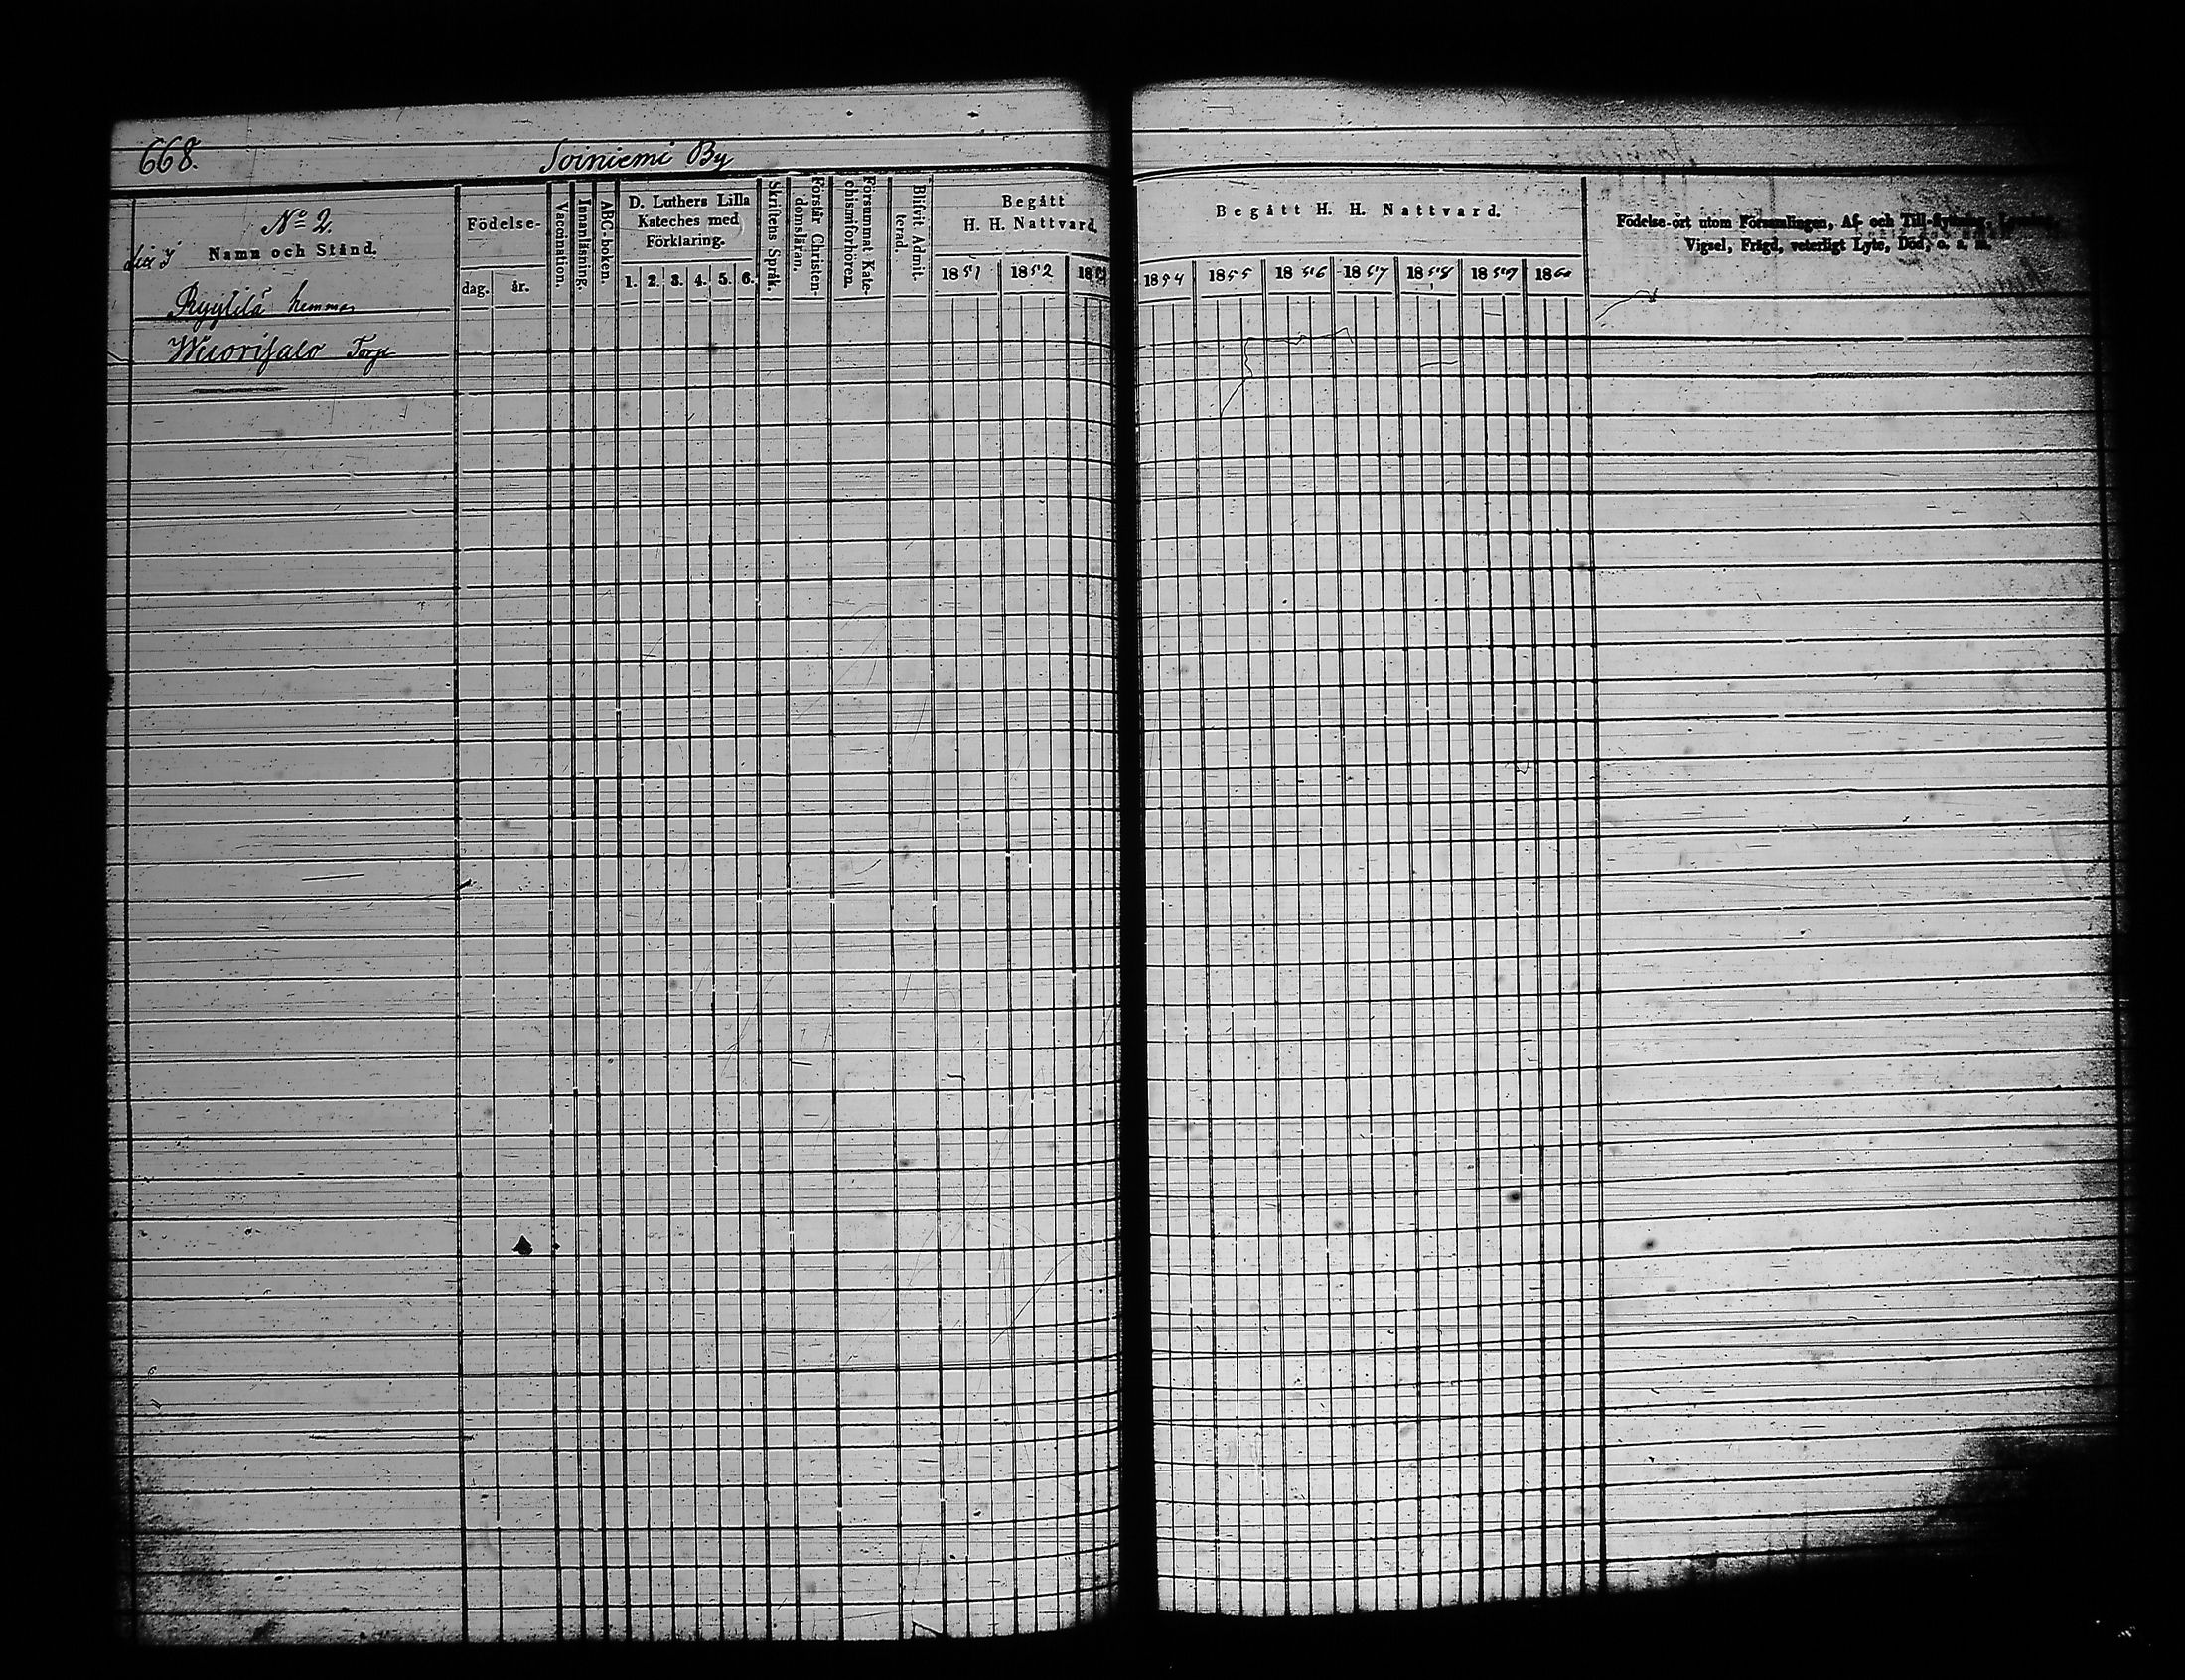 668.
Soiniemi By
No 2.
Namn och Stånd.
Födelse-
dag.
år.
Vaccination.
Innanläsning.
ABC-boken.
D. Luthers Lilla
Kateches med
Förklaring.
1. 2. 3. 4. 5. 6.
Skriftens Språk.
Förstår Christen-
domsläran.
Försummat Kate-
chismiförhören.
Blifvit Admit-
terad.
Begått
H. H. Nattvard.
1851 1852 1853
Begått H. H. Nattvard.
1854 1855 1856 1857 1858 1859 1860
Födelse-ort utom Församlingen, Af- och Till-flyttning,
Vigsel, Frägd, veterligt Lyte, Död, o. s. m.
Ryylilä hemman
Wuorisalo Torp